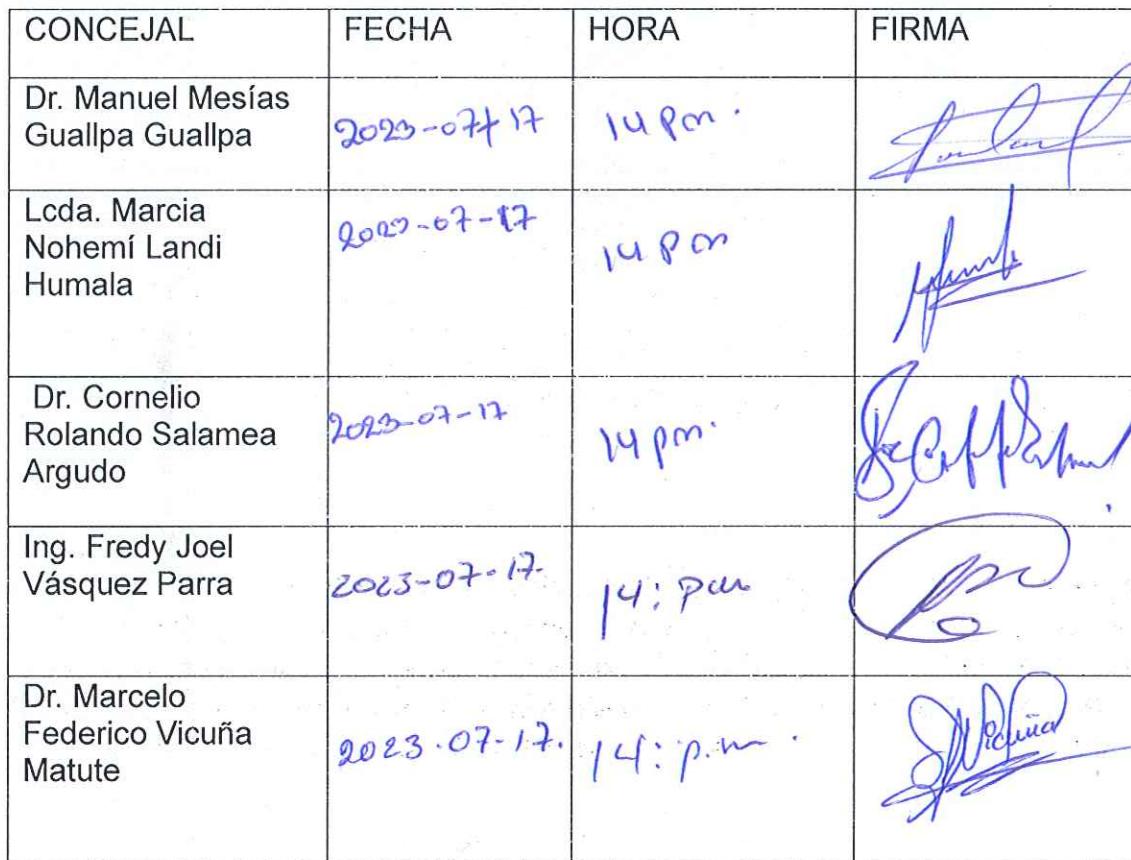 CONCEJAL FECHA HORA FIRMA
Dr. Manuel Mesías
Guallpa Guallpa
2023-07/17 14 pm.
Lcda. Marcia
Nohemí Landi
Humala
2023-07-17 14 pm
Dr. Cornelio
Rolando Salamea
Argudo
2023-07-17 14 pm.
Ing. Fredy Joel
Vásquez Parra
2023-07-17. 14: pm
Dr. Marcelo
Federico Vicuña
Matute
2023.07-17. 14: p.m. Vicuña